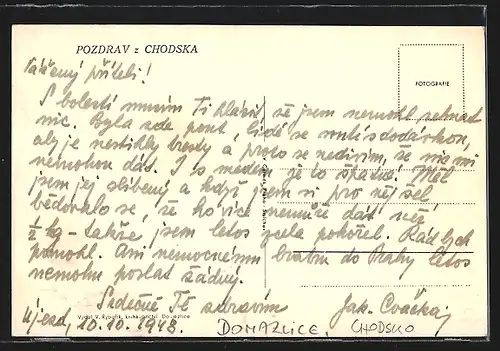 POZDRAV z CHODSKA
FOTOGRAFIE
Vážený příteli!
S bolestí musím Ti hlásit, že jsem nemohl sehnat
nic. Byla zde pout, lidé se s dodávkou,
aby je nestihly tresty a proto se nedivím, že mi nic
nemohou dát. I s medem je to špatné! Měl
jsem jej slíbený a když jsem si pro něj šel
bědovalo se, že ho více nemůže dát než
½ kg – takže jsem letos zcela pohořel. Rád bych
pomohl. Ani nemocnému bratru do Prahy letos
nemohu poslat žádný.
Srdečně Tě zdravím
Jak. Cvačka
Újezd, 10.10.1948.
Vydal V. Rybařík, knihkupectví Domažlice
DOMAZLICE CHODSKO